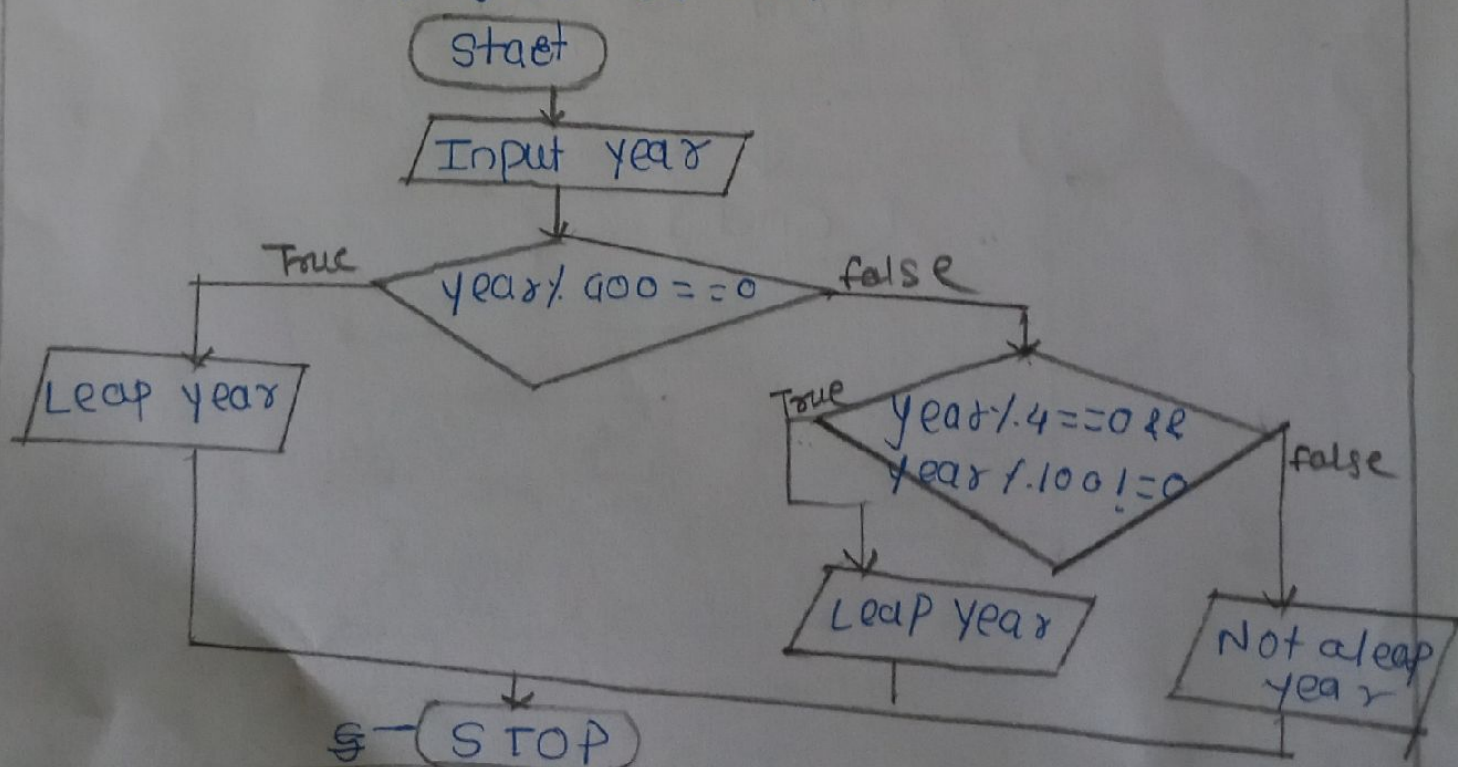 Start
Input year
True
year % 400 == 0
false
Leap year
True
year % 4 == 0 &&
year % 100 != 0
false
Leap year
Not a leap
year
STOP